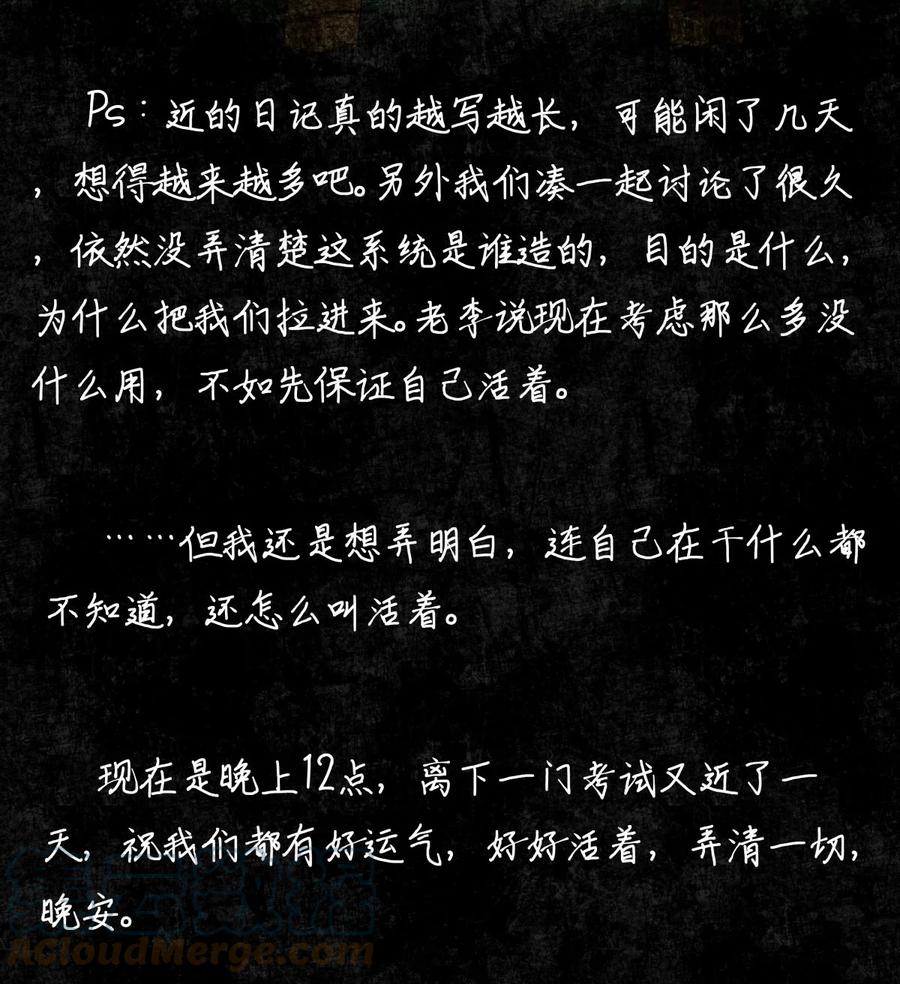 Ps：近的日记真的越写越长，可能闲了几天
，想得越来越多吧。另外我们凑一起讨论了很久
，依然没弄清楚这系统是谁造的，目的是什么，
为什么把我们拉进来。老李说现在考虑那么多没
什么用，不如先保证自己活着。
……但我还是想弄明白，连自己在干什么都
不知道，还怎么叫活着。
现在是晚上12点，离下一门考试又近了一
天，祝我们都有好运气，好好活着，弄清一切，
晚安。
ACloudMerge.com